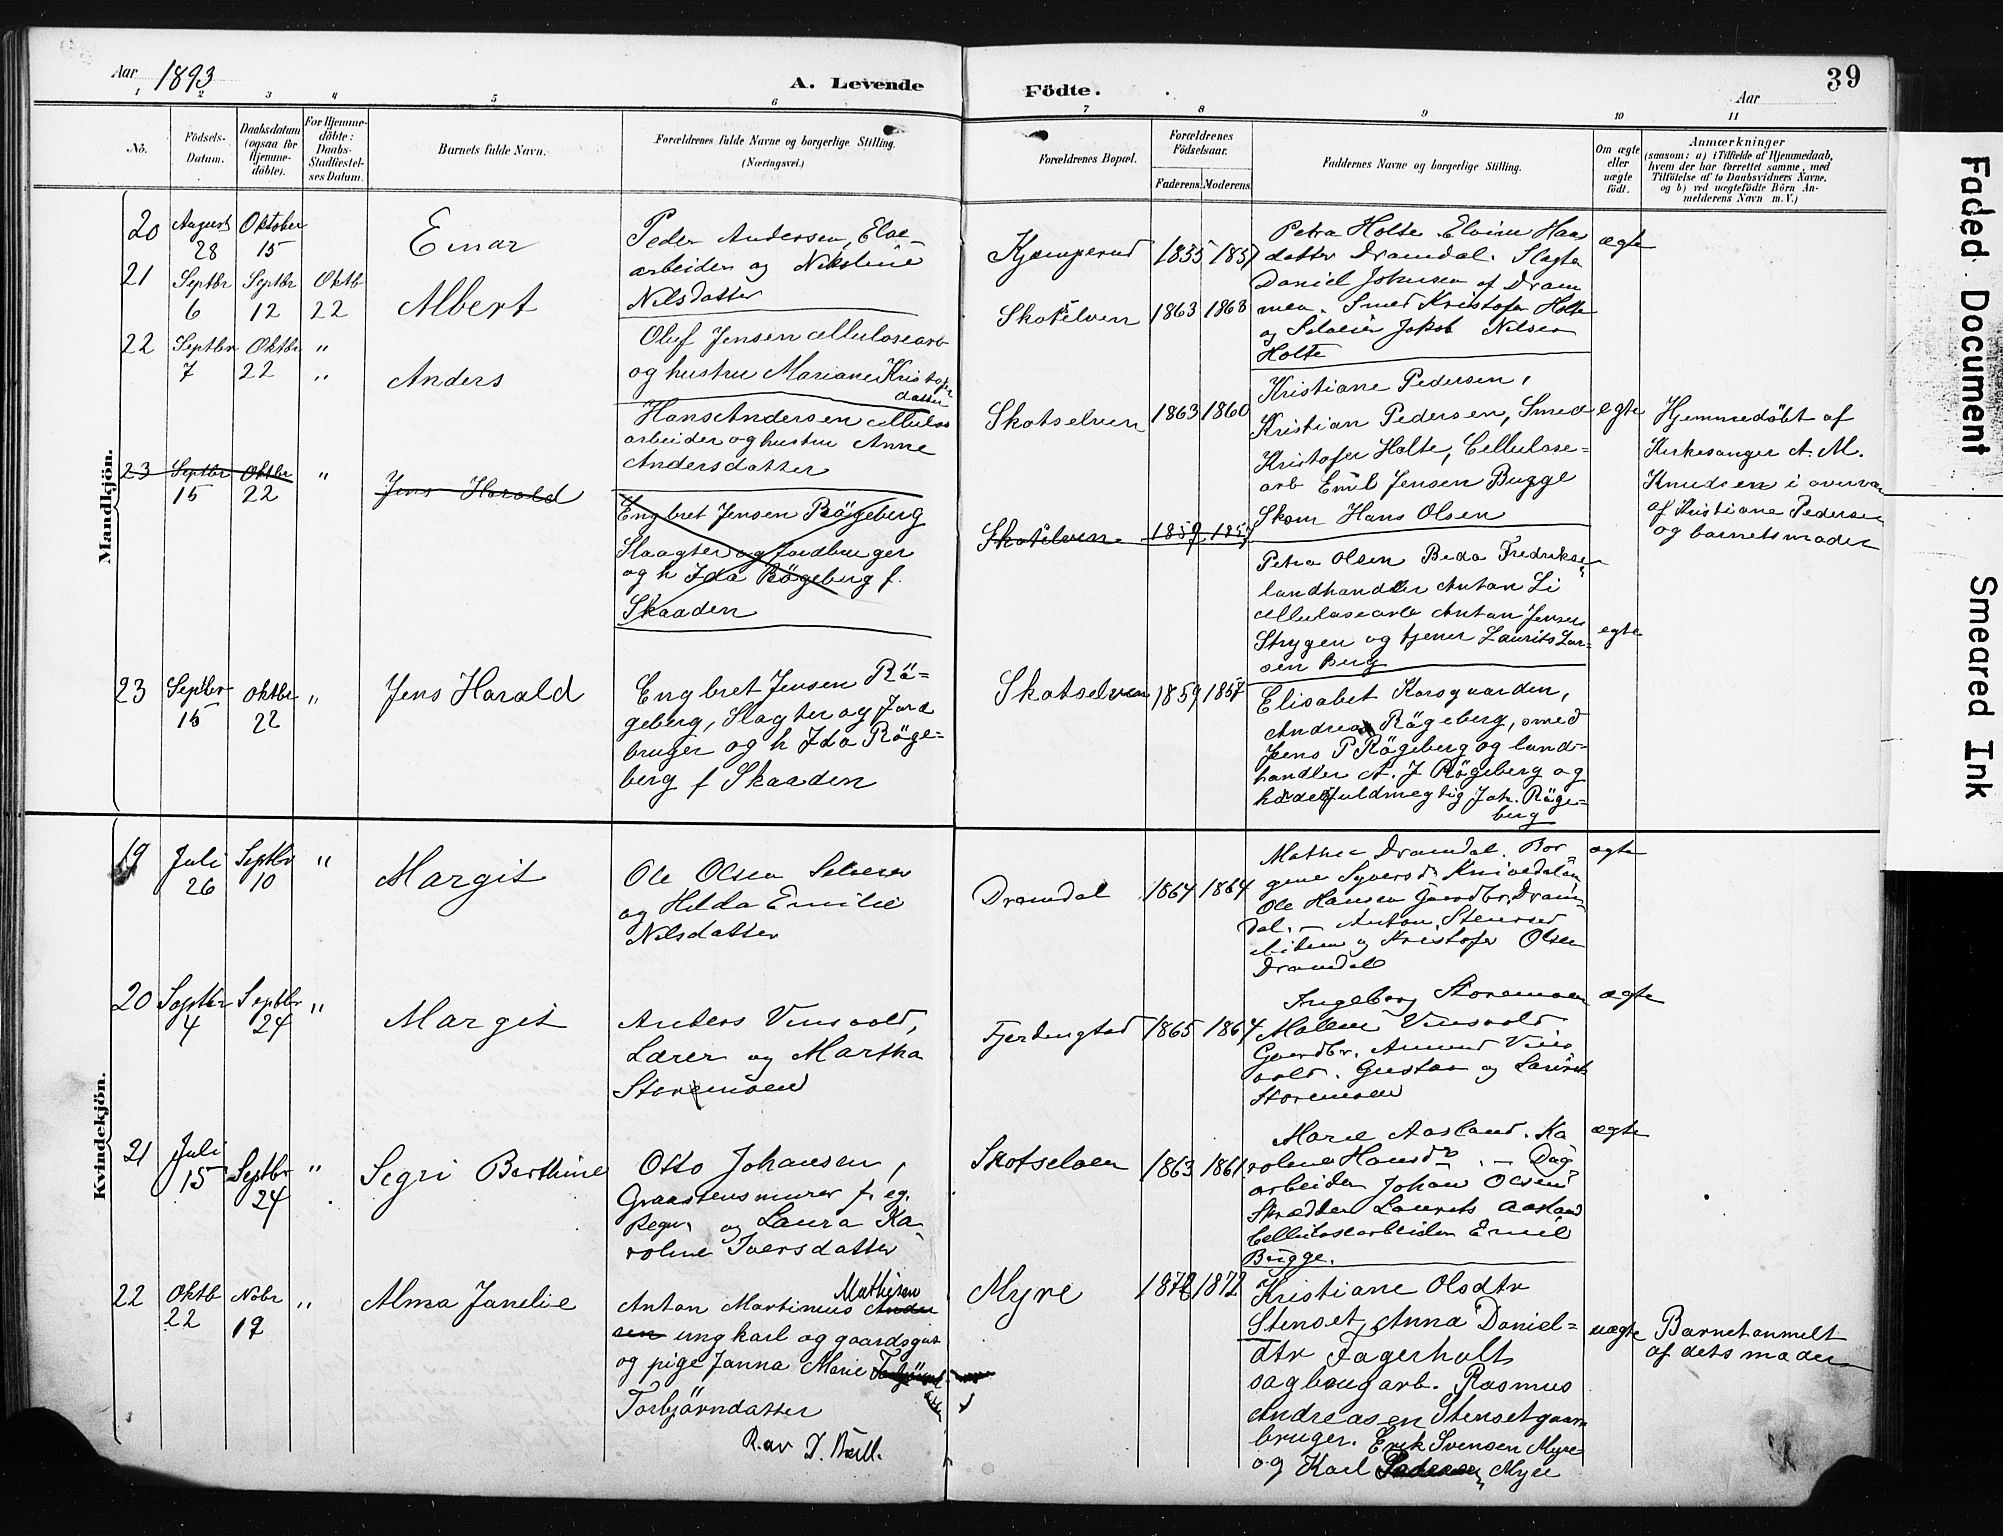 Aar 1893
A. Levende
Födte.
39
Aar
1 2 3 4 5 6 7 8 9 10 11
No.
Födsels-
Datum.
Daabsdatum
(ogsaa for
Hjemme-
döbte).
For Hjemme-
döbte:
Daabs-
Stadfæstel-
ses Datum.
Barnets fulde Navn.
Forældrenes fulde Navne og borgerlige Stilling.
(Næringsvei.)
Forældrenes Bopæl.
Forældrenes
Födselsaar.
Faderens.
Moderens.
Faddernes Navne og borgerlige Stilling.
Om ægte
eller
uægte
födt.
Anmærkninger
(saasom: a) i Tilfælde af Hjemmedaab,
hvem der har forrettet samme, med
Tilföielse af to Daabsvidners Navne,
og b) ved uægtefödte Börn An-
melderens Navn m. V.)
Mandkjön.
20
August
28
Oktober
15
Einar
Peder Andersen, Elve-
arbeider og Nikoline
Nilsdatter
Kjæmperud
1855
1857
Petra Holte Elvine Haas
datter Dramdal. Slagter
Daniel Johnsen af Dram
men. Smed Kristofer Holte
og Selveier Jakob Nilsen
Holte
ægte
21
Septbr
6
Septbr
12
Oktb
22
Albert
Oluf Jensen cellulosearb
og hustru Mariane Kristofer
datter
Skotselven
1863
1868
Kristiane Pedersen,
Kristian Pedersen, Smed
Kristofer Holte, Cellulose=
arb Emil Jensen Bugge
Skom Hans Olsen
egte
Hjemmedöbt af
Kirkesanger A. M.
Knudsen i overvær
af Kristiane Pedersen
og barnets moder
22
Septbr
7
Oktbr
22
"
"
Anders
Hans Andersen cellulos
arbeider og hustru Anne
Andersdatter
Skotselven
1863
1860
Petra Olsen Beda Fredriksen
landhandler Anton Li
cellulosearb Anton Jensen
Strygen og tjener Laurits Lar=
sen Berg
egte
23
Septbr
15
Oktbr
22
"
Jens Harald
Engbret Jensen Rögeberg
Slaagter og Jordbruger
og h Ida Rögeberg f.
Skaaden
Skotselven
1859
1857
23
Septbr
15
Oktbr
22
"
Jens Harald
Engbret Jensen Rö-
geberg, Slagter og Jord
bruger og h Ida Röge=
berg f Skaaden
Skotselven
1859
1857
Elisabet Korsgaarden,
Andrea Rögeberg, smed
Jens P Rögeberg og land=
handler A. J Rögeberg og
handelsfuldmegtig Joh. Röge=
berg
Kvindekjön.
19
Juli
26
Septbr
10
"
Margit
Ole Olsen Selveier
og Hilda Emilie
Nilsdatter
Dramdal
1864
1864
Mathea Dramdal. Bor
gine Syversd. Knivedalen
Ole Hansen Gaardbr. Dram=
dal. – Anton Stensrud
og Kristofer Olsen
Dramdal
ægte
20
Septbr
4
Septbr
24
"
Margit
Anders Vinsvold,
Lærer og Martha
Storemoen
Fjerdingstad
1865
1864
Ingeborg Storemoen
Malene Vinsvold
Gaardbr. Amund Vins
vold. Gustav og Laurits
Storemoen
ægte
21
Juli
15
Septbr
24
"
Segri Berthine
Otto Johansen,
Graastensmurer f. eg.
Regn. og Laura Ka
roline Iversdatter
Skotselven
1863
1861
Marie Aasland. Ka
roline Hansdr. – Dag
arbeider Johan Olsen
Skrædder Laurits Aasland
Cellulosearbeider Emil
Bugge.
ægte
22
Oktb
22
Nobr
19
"
Alma Janelie
Mathisen
Anton Martinius Ander
sen ungkarl og gaardsgut
og pige Janna Marie
Torbjörndatter
Myre
1872
1872
Kristiane Olsdtr
Stenset, Anna Daniel=
dtr Fagerholt
sagbrugarb. Rasmus
Andreasen Stenset gaard
bruger. Erik Svensen Myre
og Karl Pedersen Myre
uægte
Barnet anmelt
af dets moder
Faded Document
Smeared Ink